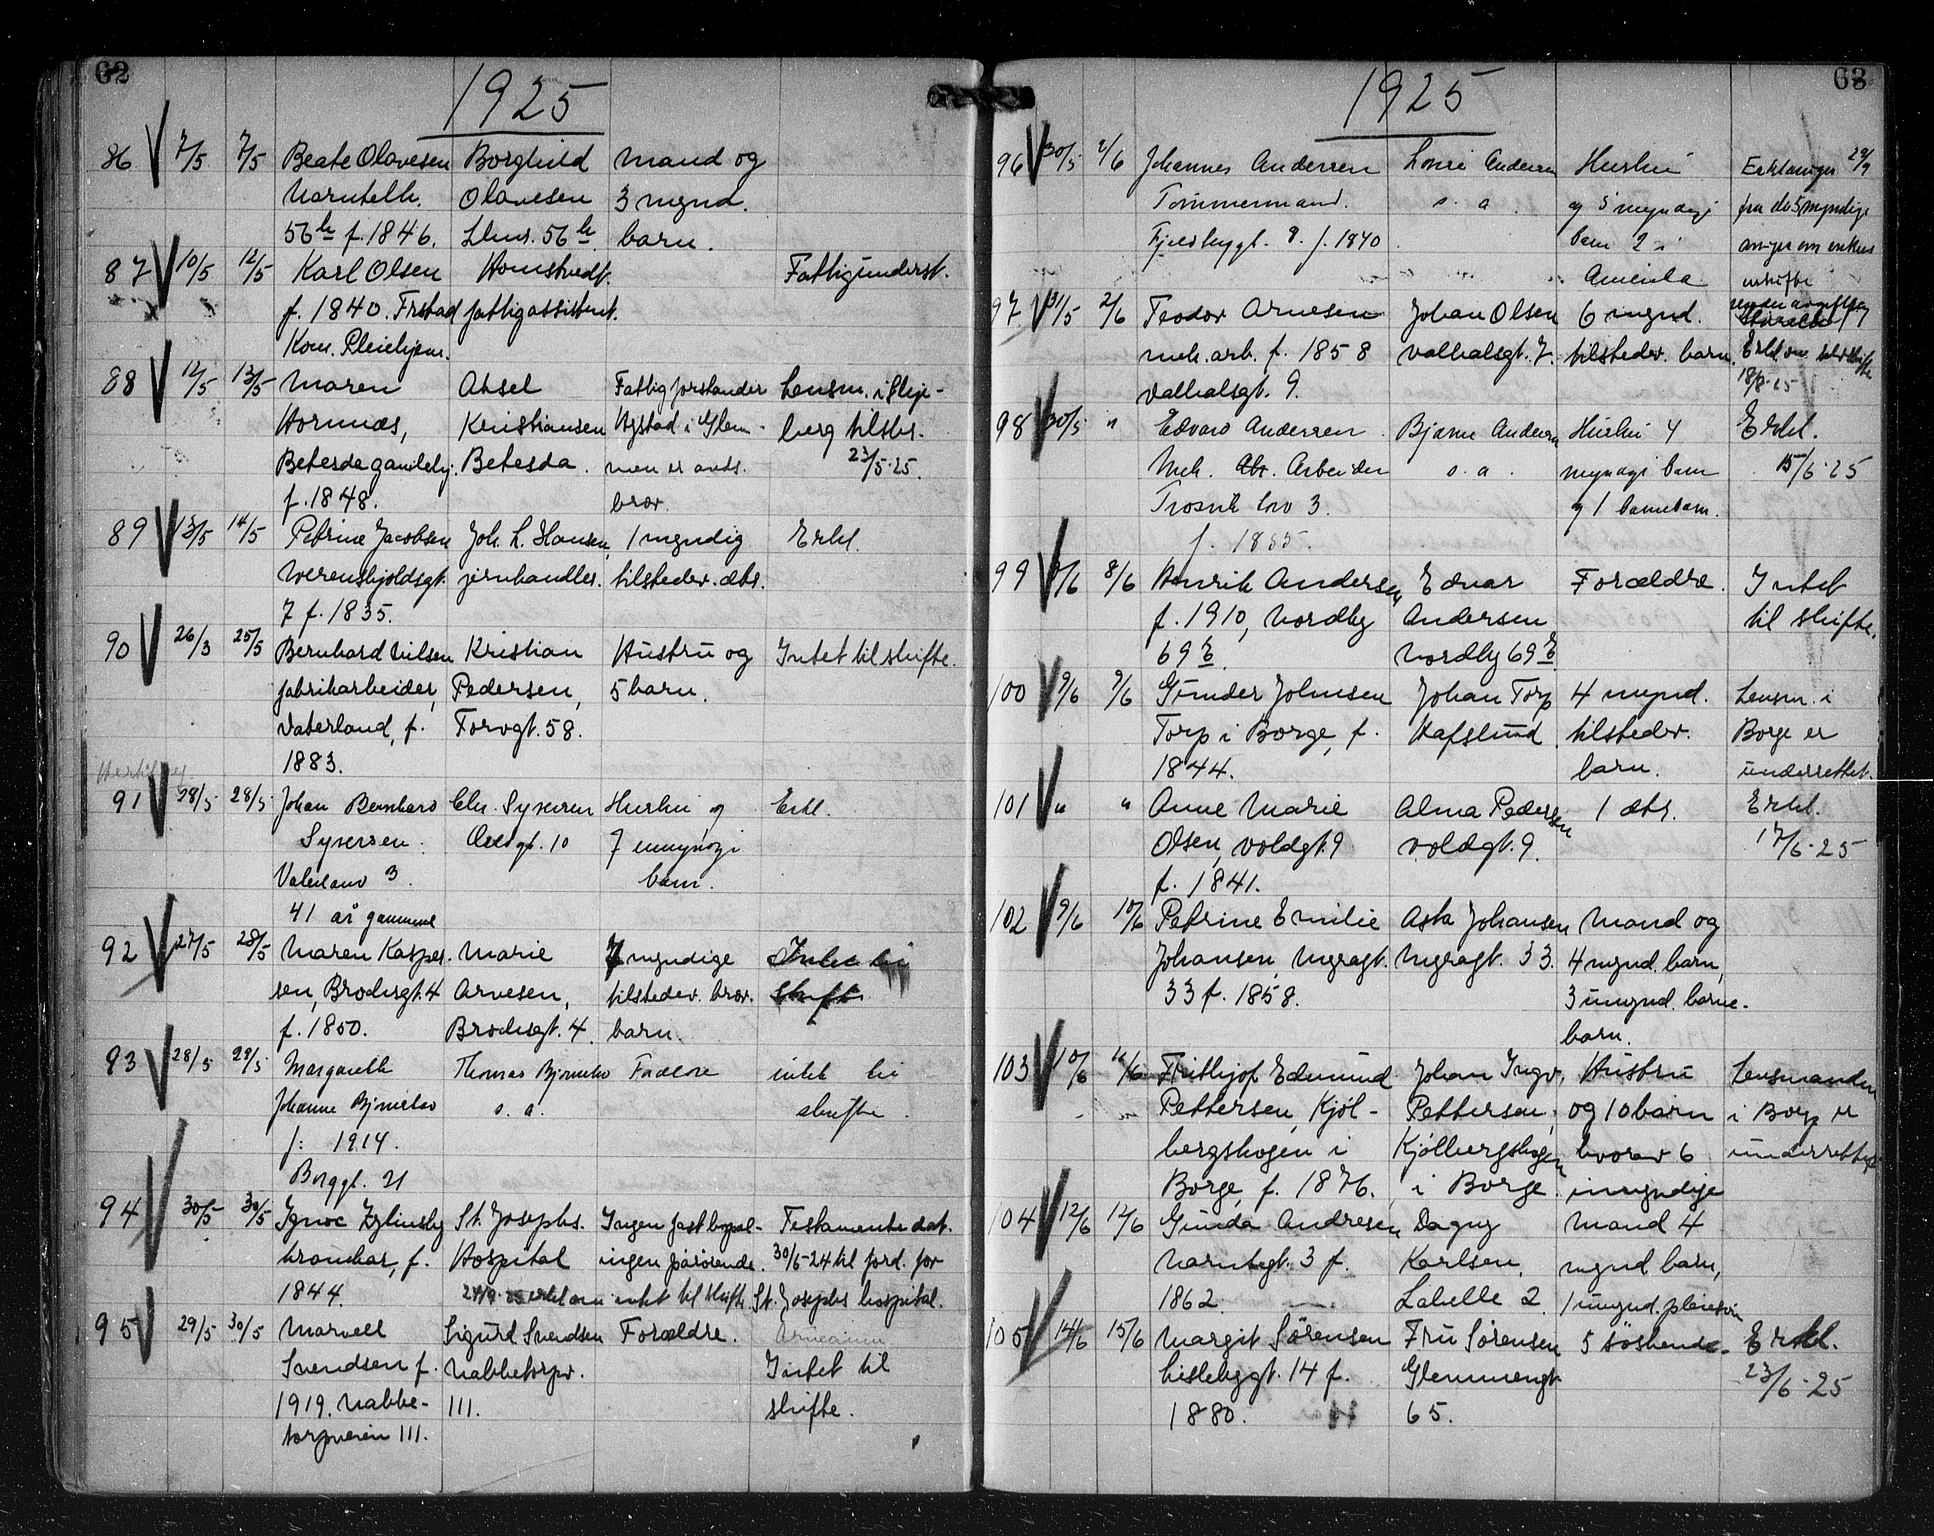 62
1925
86 7/5 7/5 Beate Olavesen Borghild Mand og
Olavesen 3 mynd.
56 b f. 1846. 56 b. barn.
87 10/5 12/5 Karl Olsen Homstvedt. Fattigunderst.
f. 1840. Frstad fattigassistent.
Kom. Pleiehjem.
88 12/5 13/5 Maren Aksel Fattigforstander Lensm. i Skje-
Hornnæs, Kristiansen Agstad i Glem- berg tilskr.
Betesda gamlehj. Betesda. men er avds. 23/5-25.
f. 1848. bror.
89 13/5 14/5 Petrine Jacobsen Joh. L. Hansen, 1 myndig Erkl.
Werenskjoldsgt. jernhandler. tilstedev. dtr.
7 f. 1835.
90 26/3 25/5 Bernhard Nilsen Kristian Hustru og Intet til skifte.
fabrikarbeider, Pedersen, 5 barn.
Vaterland, f. Torvgt. 58.
1883.
91 28/5 28/5 Johan Bernhard Chr. Syversen Hustru og Erkl.
Syversen. 10 7 umyndige
Vaterland 3. barn.
41 år gammel
92 27/5 28/5 Maren Kasper- Marie 7 myndige Intet til
sen, Brodsgt. 4 Arvesen, tilstedev. skifte
f. 1850. Brodsgt. 4. barn.
93 28/5 29/5 Margareth Thomas Bjørnebo Foreldre intet til
Johanne Bjørnebo s. a. skifte.
f. 1914.
Borggt. 21
94 30/5 30/5 Ignoc St. Josephs. Ingen fast bopæl- Testamente dat.
f. Hospital ingen pårørende. 30/6-24 til ford. for
1844. erkl om intet til skifte St. Josephs hospital.
95 29/5 30/5 Marvell Sigurd Svendsen Forældre.
Svendsen f. Nabbetorpv. Intet til
1919. Nabbe- 111. skifte.
torpveien 111.
63
1925
96 30/5 2/6 Johannes Andersen Lovise Andersen Hustru Erklæringer 29/7
Tømmermand. s. a. og 5 myndige fra de 5 myndige
Fjeldbygt. 8. f. 1840 barn 2 i
Amerika uskifte
97 31/5 2/6 Teodor Arnesen Johan Olsen 6 mynd.
mek. arb. f. 1858 Valhalsgt. 7. tilstedev. barn. Erkl. om
Valhalsgt. 9. 18/8-25
98 30/5 " Edvard Andersen Bjarne Andersen Hustru 4 Erkl.
Mek. Arbeider s. a. myndige barn 15/6-25
Trosvik 3. og 1 barnebarn.
f. 1855.
99 8/6 Henrik Andersen Edvar Forældre. Intet
f. 1910, Nordby Andersen til skifte.
69 b. Nordby 69 b
100 9/6 9/6 Gunder Johnsen Johan Torp 4 mynd. Lensm. i
Torp i Borge, f. Hafslund. tilstedev. Borge er
1844. barn. underrettet.
101 " " Anne Marie Alma Pedersen 1 dtr. Erkl.
Olsen, Voldgt. 9 Voldgt. 9. 17/6-25
f. 1841.
102 9/6 10/6 Petrine Emilie Ask Johansen Mand og
Johansen, Nygagt. Nygagt. 33. 4 mynd. barn,
33 f. 1858. 3 umynd. barne-
barn.
103 10/6 Frithjof Edmund Johan Ingv. Hustru Lensmanden
Pettersen, Kjøl- Pettersen, og 10 barn i Borge er
bergskogen i Kjølbergskogen hvorav 6 underrettet
Borge, f. 1876. i Borge. umyndige
104 12/6 12/6 Gunda Andresen Dagny Mand 4
3 f. Karlsen, mynd. barn,
1862. Labelle 2. 1 umynd. pleiesøn
105 14/6 15/6 Margit Sørensen Fru Sørensen 5 søskende. Erkl.
Lislebygt. 14 f. Glemmengt. 23/6-25
1880. 65.